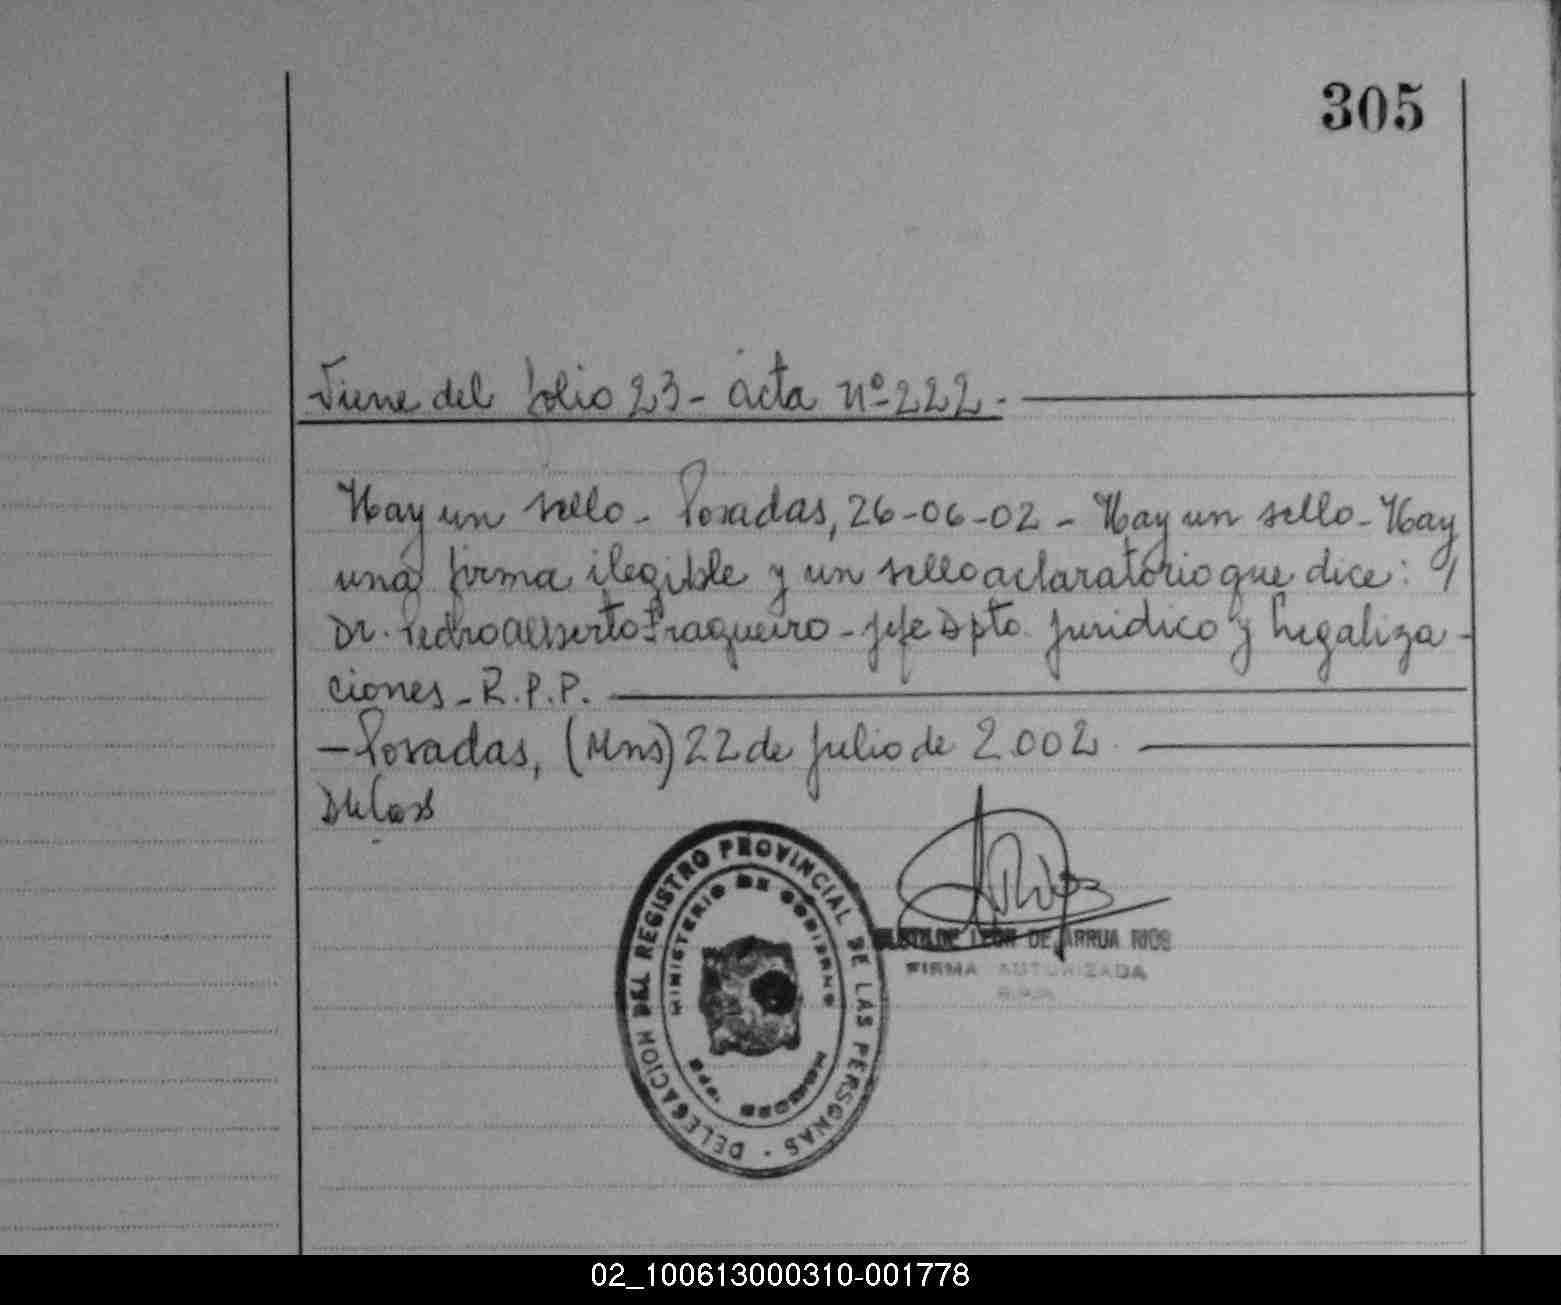 305
Viene del folio 23 - acta nº 222 -
Hay un sello - Posadas, 26-06-02 - Hay un sello - Hay
una firma ilegible y un sello aclaratorio que dice: /
Dr. Pedro Alberto Fraqueiro - jefe Dpto. Juridico y Legaliza-
ciones - R.P.P.
- Posadas, (Mns) 22 de julio de 2.002
DELEGACION DEL REGISTRO PROVINCIAL DE LAS PERSONAS
MINISTERIO DE GOBIERNO
LEON DE ARRUA RIOS
FIRMA AUTORIZADA
02_100613000310-001778